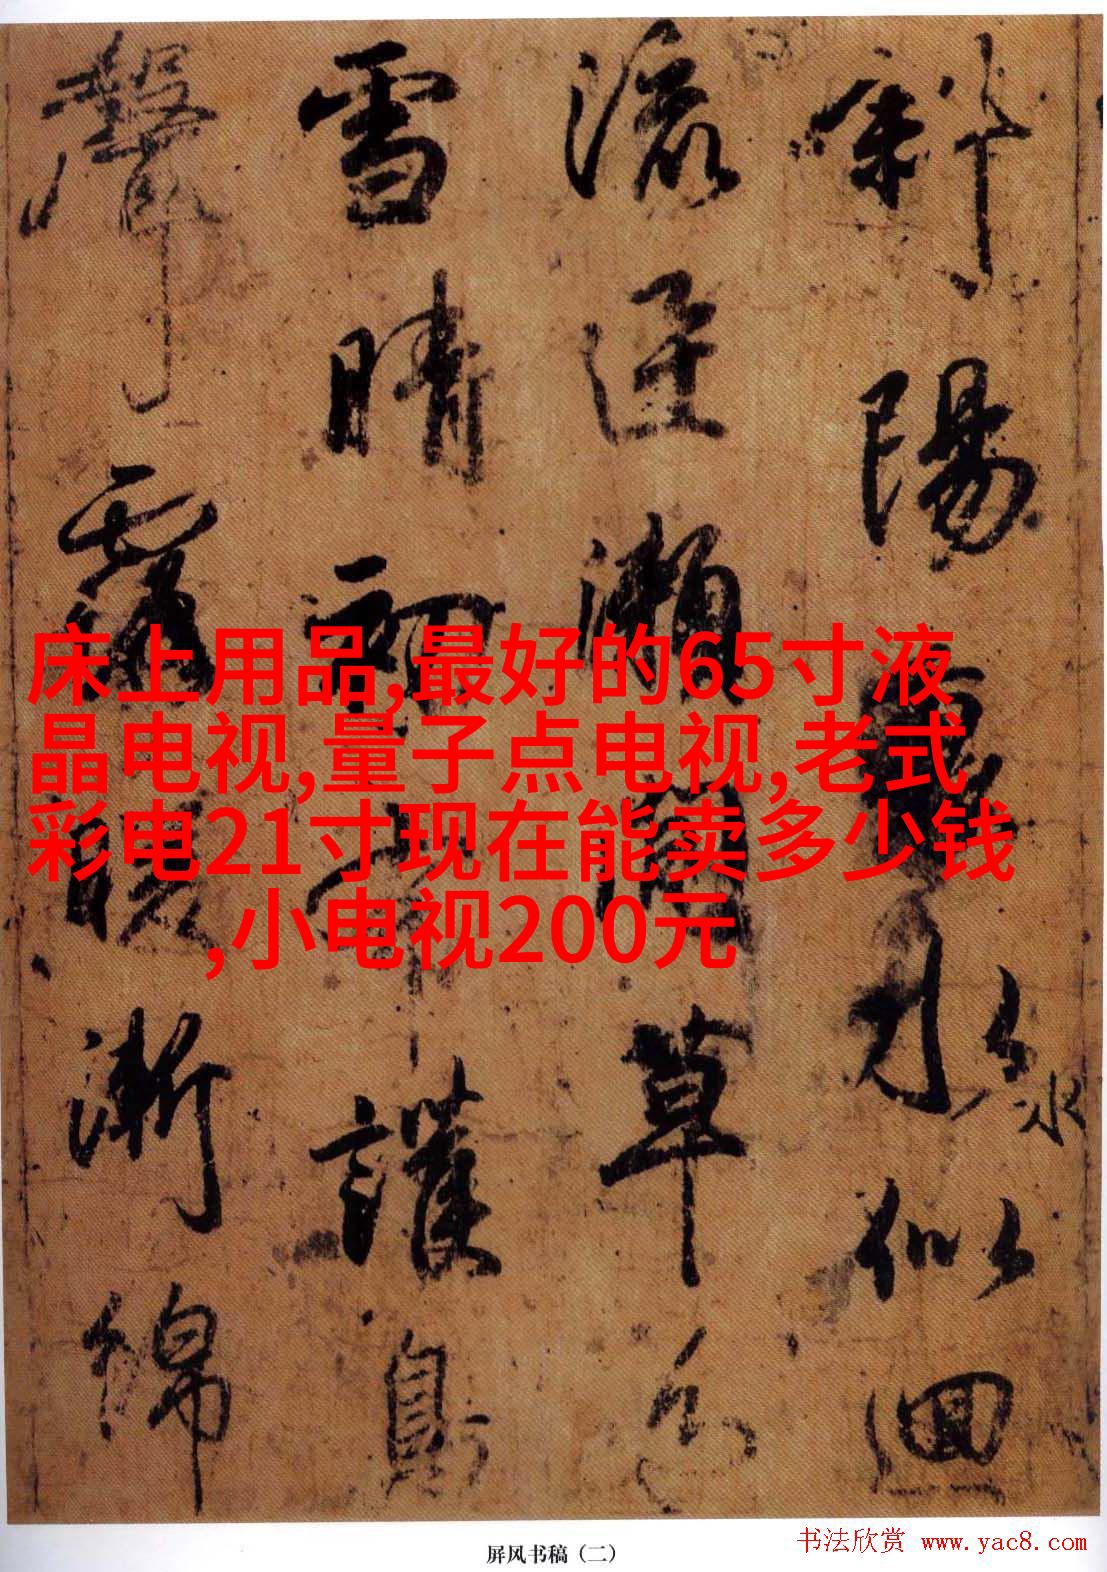 斜陽 水 似
流 瀨 草 色
雪晴初 護
聲靄暖漸綿
床上用品,最好的65寸液
晶电视,量子点电视,老式
彩电21寸现在能卖多少钱
,小电视200元
屏风书稿（二）
书法欣赏 www.yac8.com